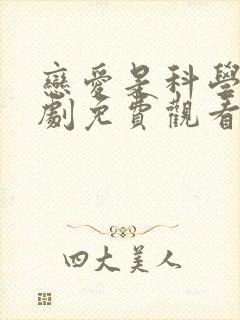 戀愛是科學
劇免費觀看
四大美人